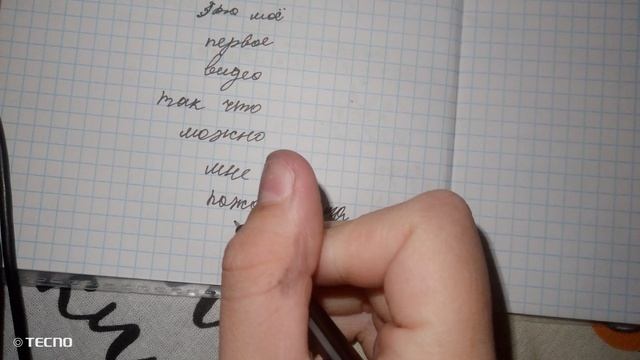 Это моё
первое
видео
так что
можно
мне
© TECNO